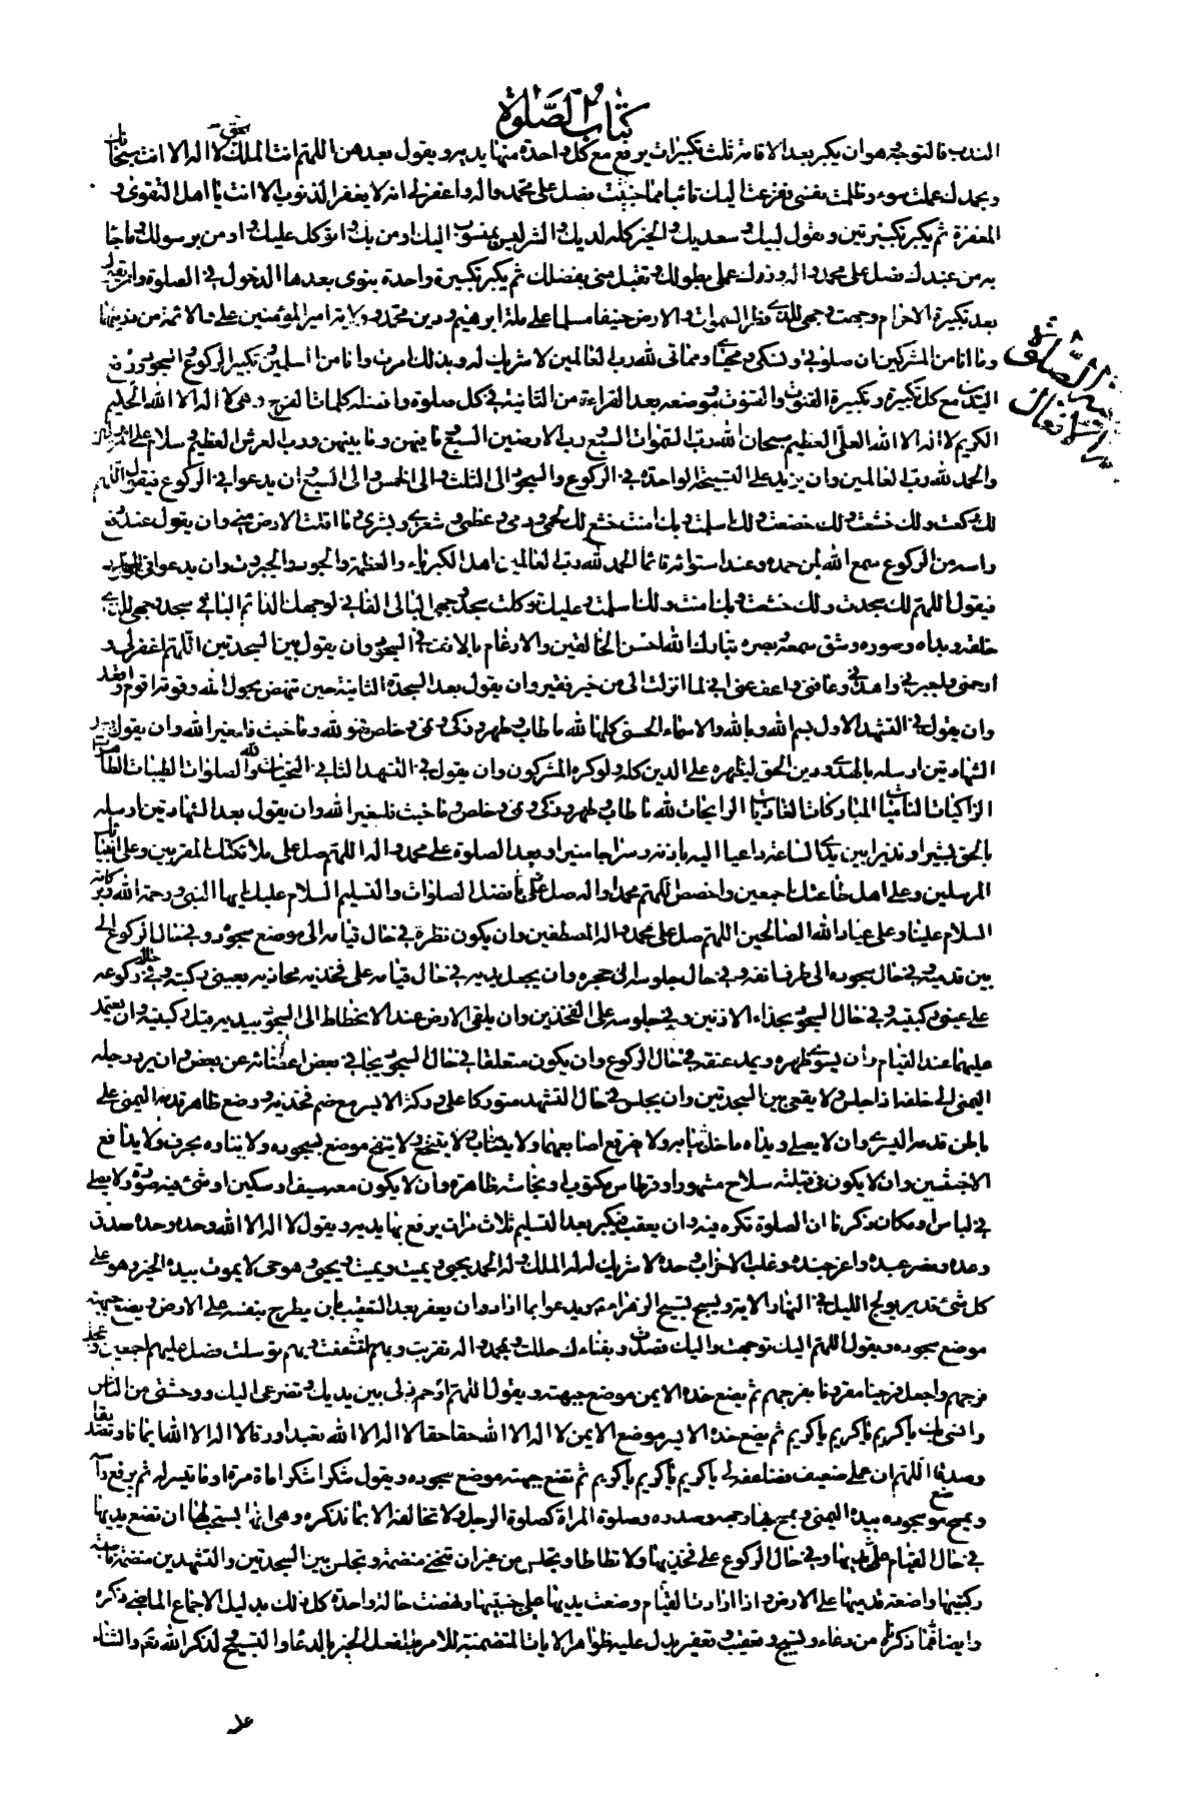 كتاب الصلوة
الندب فالتوجه هو ان يكبر بعد الاقامة ثلث تكبيرات يرفع مع كل واحدة منها يديه ويقول بعدهن اللهم انت الملك الحق لا اله الا انت سبحانك
وبحمدك عملت سوء وظلمت نفسي ففزعت اليك تائبا مما جنيت فصل على محمد واله واغفر لي انه لا يغفر الذنوب الا انت يا اهل التقوى و
المغفرة ثم يكبر تكبيرتين ويقول لبيك وسعديك والخير كله لديك والشر ليس بمنسوب اليك اومن بك واتوكل عليك واومن برسولك وما جاء
به من عندك فصل على محمد واله وزك عملي بطولك وتقبل مني بفضلك ثم يكبر تكبيرة واحدة ينوي بعدها الدخول في الصلوة وان يقول
بعد تكبيرة الاحرام وجهت وجهي للذي فطر السموات والارض حنيفا مسلما على ملة ابرهيم ودين محمد وولاية امير المؤمنين علي والائمة من ذريتهما
وما انا من المشركين ان صلوتي ونسكي ومحياي ومماتي لله رب العالمين لا شريك له وبذلك امرت وانا من المسلمين وتكبير الركوع والسجود ورفع
اليدين مع كل تكبيرة وتكبيرة القنوت والقنوت وموضعه بعد القراءة من الثانية في كل صلوة وافضله كلمات الفرج وهي لا اله الا الله الحليم
الكريم لا اله الا الله العلي العظيم سبحان الله رب السموات السبع ورب الارضين السبع وما فيهن وما بينهن ورب العرش العظيم وسلام على المرسلين
والحمد لله رب العالمين وان يزيد على التسبيحة الواحدة في الركوع والسجود الى الثلث والى الخمس والى السبع وان يدعو في الركوع فيقول اللهم
لك ركعت ولك خشعت ولك خضعت ولك اسلمت وبك امنت خشع لك لحمي ودمي وعظمي وشعري وبشري وما اقلت الارض مني وان يقول عند رفع
راسه من الركوع سمع الله لمن حمده وعند استوائه قائما الحمد لله رب العالمين اهل الكبرياء والعظمة والجود والجبروت وان يدعو في السجود
فيقول اللهم لك سجدت ولك خشعت وبك امنت ولك اسلمت وعليك توكلت سجد وجهي البالي الفاني لوجهك الدائم الباقي سجد وجهي للذي
خلقه وبداه وصوره وشق سمعه وبصره تبارك الله احسن الخالقين والارغام بالانف في السجود وان يقول بين السجدتين اللهم اغفر لي و
ارحمني واجبرني واهدني وعافني واعف عني اني لما انزلت الي من خير فقير وان يقول بعد السجدة الثانية حين تنهض بحول الله وقوته اقوم واقعد
وان يقول في التشهد الاول بسم الله وبالله والاسماء الحسنى كلها لله ما طاب وطهر وزكى ونمى وخلص فهو لله وما خبث فلغير الله وان يقول بعد
الشهادتين ارسله بالهدى ودين الحق ليظهره على الدين كله ولو كره المشركون وان يقول في التشهد الثاني التحيات لله والصلوات الطيبات الطاهرات
الزاكيات الناميات المباركات الغاديات الرايحات لله ما طاب وطهر وزكى ونمى وخلص وما خبث فلغير الله وان يقول بعد الشهادتين ارسله
بالحق بشيرا ونذيرا بين يدي الساعة وداعيا اليه باذنه وسراجا منيرا وبعد الصلوة على محمد واله اللهم صل على ملائكتك المقربين وعلى انبيائك
المرسلين وعلى اهل طاعتك اجمعين واخصص اللهم محمدا واله صل على بافضل الصلوات والتسليم السلام عليك ايها النبي ورحمة الله وبركاته
السلام علينا وعلى عباد الله الصالحين اللهم صل على محمد واله المصطفين وان يكون نظره في حال قيامه الى موضع سجوده وفي حال الركوع الى
بين قدميه وفي حال سجوده الى طرف انفه وفي حال جلوسه الى حجره وان يجعل يديه في حال قيامه على فخذيه محاذيه بعيني ركبتيه وفي حال ركوعه
على عيني ركبتيه وفي حال السجود بحذاء الاذنين وفي جلوسه على الفخذين وان يلقى الارض عند الانحطاط الى السجود بيديه قبل ركبتيه وان يعتمد
عليهما عند القيام وان يسوي ظهره ويمد عنقه في حال الركوع وان يكون متعلقا في حال السجود يجافي بعض اعضائه عن بعض وان يرد رجله
اليمنى الى خلفه اذا جلس ولا يقعي بين السجدتين وان يجلس في حال التشهد متوركا على وركه الايسر مع ضم فخذيه ووضع ظاهر قدمه اليمنى على
باطن قدمه اليسرى وان لا يصلي ويداه داخل ثيابه ولا يفرقع اصابعهما ولا يتثاب ولا يتنخع ولا ينفخ موضع سجوده ولا يتاوه بحرف ولا يدافع
الاخبثين وان لا يكون في قبلته سلاح مشهور او قرطاس مكتوب او نجاسة ظاهرة وان لا يكون معه سيف او سكين او شئ فيه صورة ولا يصلي
في لباس او مكان ذكرنا ان الصلوة تكره فيه وان يعقب فيكبر بعد التسليم ثلاث مرات يرفع بها يديه ويقول لا اله الا الله وحده وحده صدق
وعده ونصر عبده واعز جنده وغلب الاحزاب وحده لا شريك له له الملك وله الحمد يحيي ويميت ويميت ويحيي وهو حي لا يموت بيده الخير وهو على
كل شئ قدير يولج الليل في النهار الاية ويسبح تسبيح الزهراء ويدعو بما اراد وان يعفر بعد التعقيب بان يطرح بنفسه على الارض ويضع جبهته
موضع سجوده ويقول اللهم اليك توجهت واليك قصدت وبفنائك حللت وبمحمد واله تقربت وبهم استشفعت وبهم توسلت فصل عليهم اجمعين وعجل
فرجهم واجعل فرجنا مقرونا بفرجهم ثم يضع خده الايمن موضع جبهته ويقول اللهم ارحم ذلي بين يديك وتضرعي اليك ووحشتي من الناس
وانسي بك يا كريم يا كريم يا كريم ثم يضع خده الايسر موضع الايمن لا اله الا الله حقا حقا لا اله الا الله تعبدا ورقا لا اله الا الله ايمانا وتصديقا
وصدقا اللهم ان عملي ضعيف فضاعفه لي يا كريم يا كريم يا كريم ثم تضع جبهته موضع سجوده ويقول شكرا شكرا مائة مرة او ما تيسر له ثم يرفع راسه
ويمسح موضع سجوده بيده اليمنى ويمسح بها وجهه وصدره وصلوة المراة كصلوة الرجل ولا تخالفه الا بما نذكره وهي انها يستحب لها ان تضع يديها
في حال القيام على ثدييها وفي حال الركوع على فخذيها ولا تطاطا وتجلس من غير ان تنحني منضمة وتجلس بين السجدتين والتشهدين منضمة ناصبة
ركبتيها واضعة قدميها على الارض واذا ارادت القيام وضعت يديها على جنبيها ونهضت حالة واحدة كل ذلك بدليل الاجماع الماضي ذكره
وايضا فما ذكرناه من دعاء وتسبيح وتعقيب وتعفير يدل عليه ظواهر الايات المتضمنة للامر بفعل الخير بالدعاء والتسبيح لذكر الله تعم والثناء
عليه